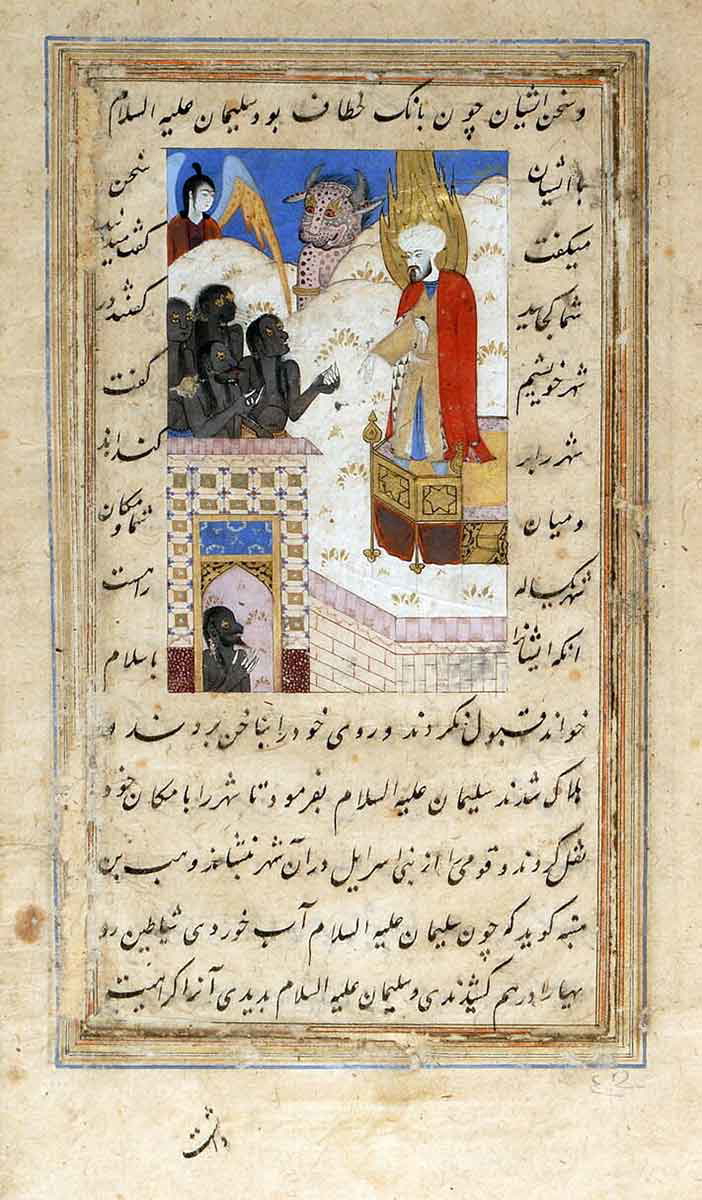 و سخن ایشان چون بانک خطاف بود و سلیمان علیه السلام
با ایشان سخن
میکفت کفت میدانید
شما کجایید کفتند در
شهر خویشیم کفت
شهر را بر کنده اند
و میان شما و مکان
شهر یکساله راهست
انکه ایشانرا باسلام
خواند قبول نکردند و روی خود را بناخن بردند و
هلاک شدند سلیمان علیه السلام بفرمود تا شهر را با مکان خود
نقل کردند و قومی را از بنی اسرایل در آن شهر بنشاند وهب بن
منبه کوید کو چون سلیمان علیه السلام آب خوردی شیاطین رو
یها را درهم کشیدندی و سلیمان علیه السلام بدیدی آنرا کراهیت
داشت